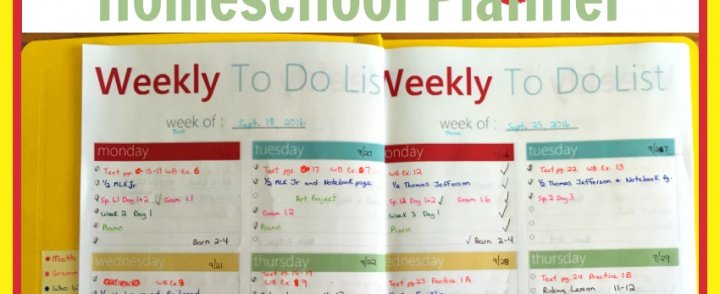 Homeschool Planner
Weekly To Do Lis
week of: Sept. 19, 2016
monday
Text pp. 15-17 WB Ex. 6
1/2 MLK Jr.
Sp. L1 Day 1+2 Gram 1.1
Week 2 Day 1
Piano
Barn 2-4
tuesday 9/20
Text pgs. 17 WB Ex. 7
1/2 MLK Jr and Notebook page
Art Project
Gram 1.2
Piano
wednesday 9/21
WB Ex 8
thursday 9/22
Text pp. 18-19
WB Ex. 9
Math
Gramm
Who W
Weekly To Do List
week of: Sept. 25, 2016
monday
WB Ex. 12
1/2 Thomas Jefferson
Sp. L2 Day 1+2 Gram 1.6
Week 3 Day 1
Piano
Barn 2-4
tuesday 9/27
Text pg. 22 WB Ex. 13
1/2 Thomas Jefferson + Notebook Pg.
Sp. 2 Day 3
wednesday 9/28
Text pp. 23 Practice 1A
thursday 9/29
Text pg. 24 Practice 1B
Riding Lesson 11-12